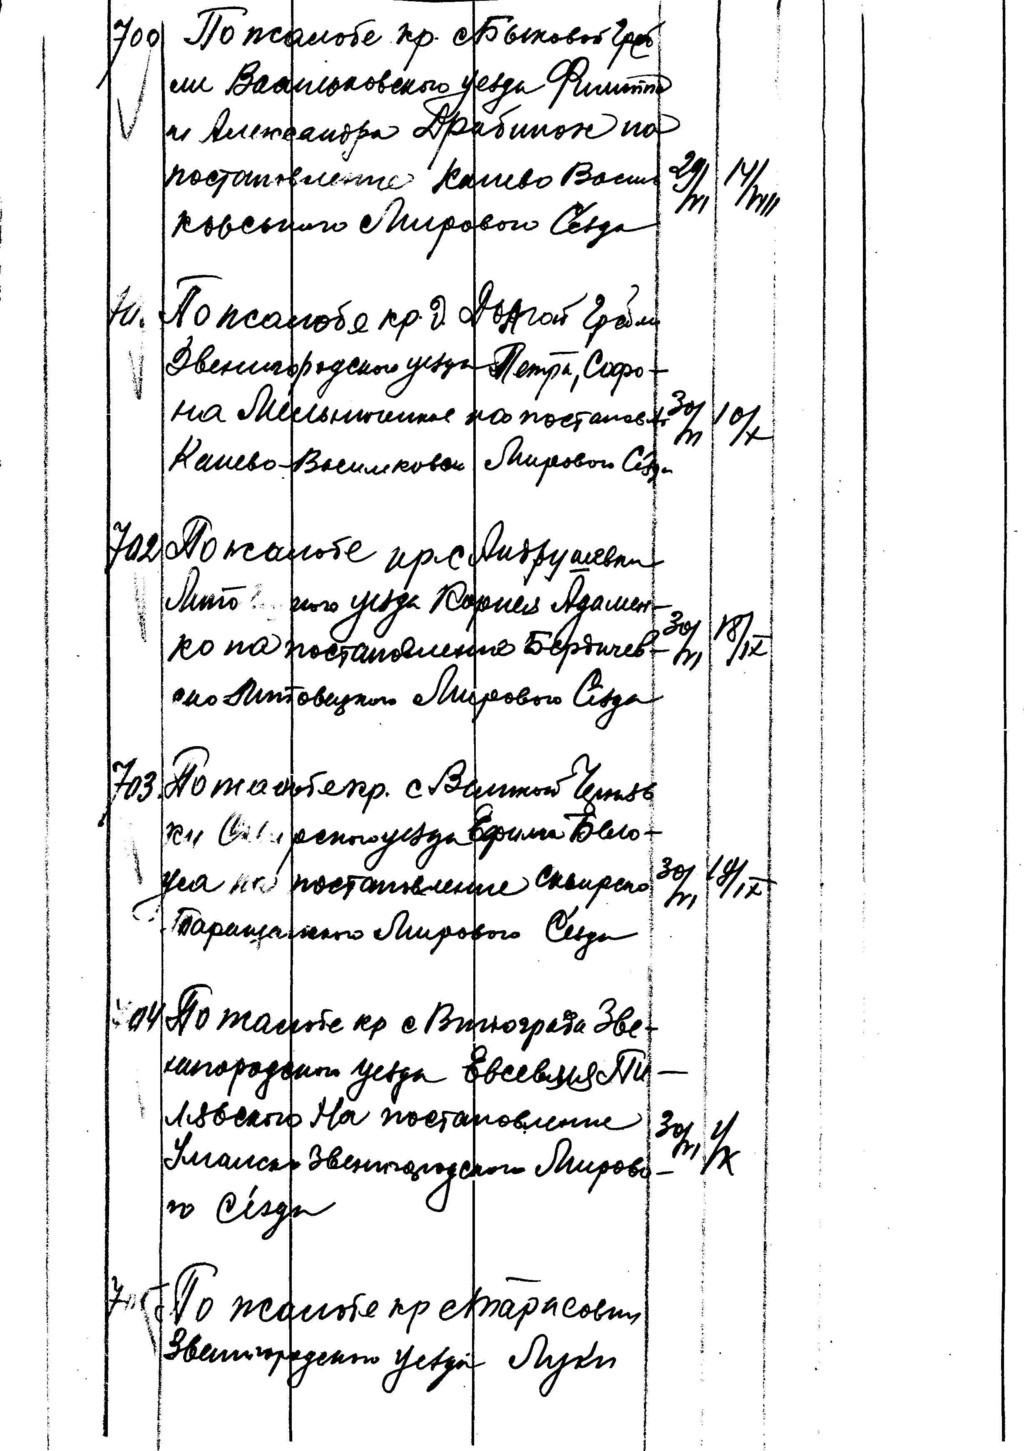 700 По жалобе кр. с Быковой Греб
ли Васильковского уезда Филиппа
и Александра Драбинок на
постановление Канево Василь 29/VI 14/VIII
ковського Мирового Сѣзда
701. По жалобе кр д. Долгой Гребли
Звенигородского уезда Петра, Софо-
на Мельниченков на постановл 30/VI 10/X
Канево-Васильковск Мирового Сѣзда
702 По жалобе кр. с Андрушевки
Липовецкого уезда Корнея Адамен-
ко на постановление Бердичев- 30/VI 18/IX
ско Липовецкого Мирового Сѣзда
703. По жалобе кр. с Великой Чернявки
Сквирского уезда Ефима Бело-
уса на постановление Сквирско 30/VI 19/IX
Таращанского Мирового Сѣзда
704 По жалобе кр с Винограда Зве-
нигородского уезда Евсевия Пи-
лявского На постановление
Уманско Звенигородского Мирово- 30/VI /X
го Сѣзда
705 По жалобе кр с Тарасовки
Звенигородского уезда Луки